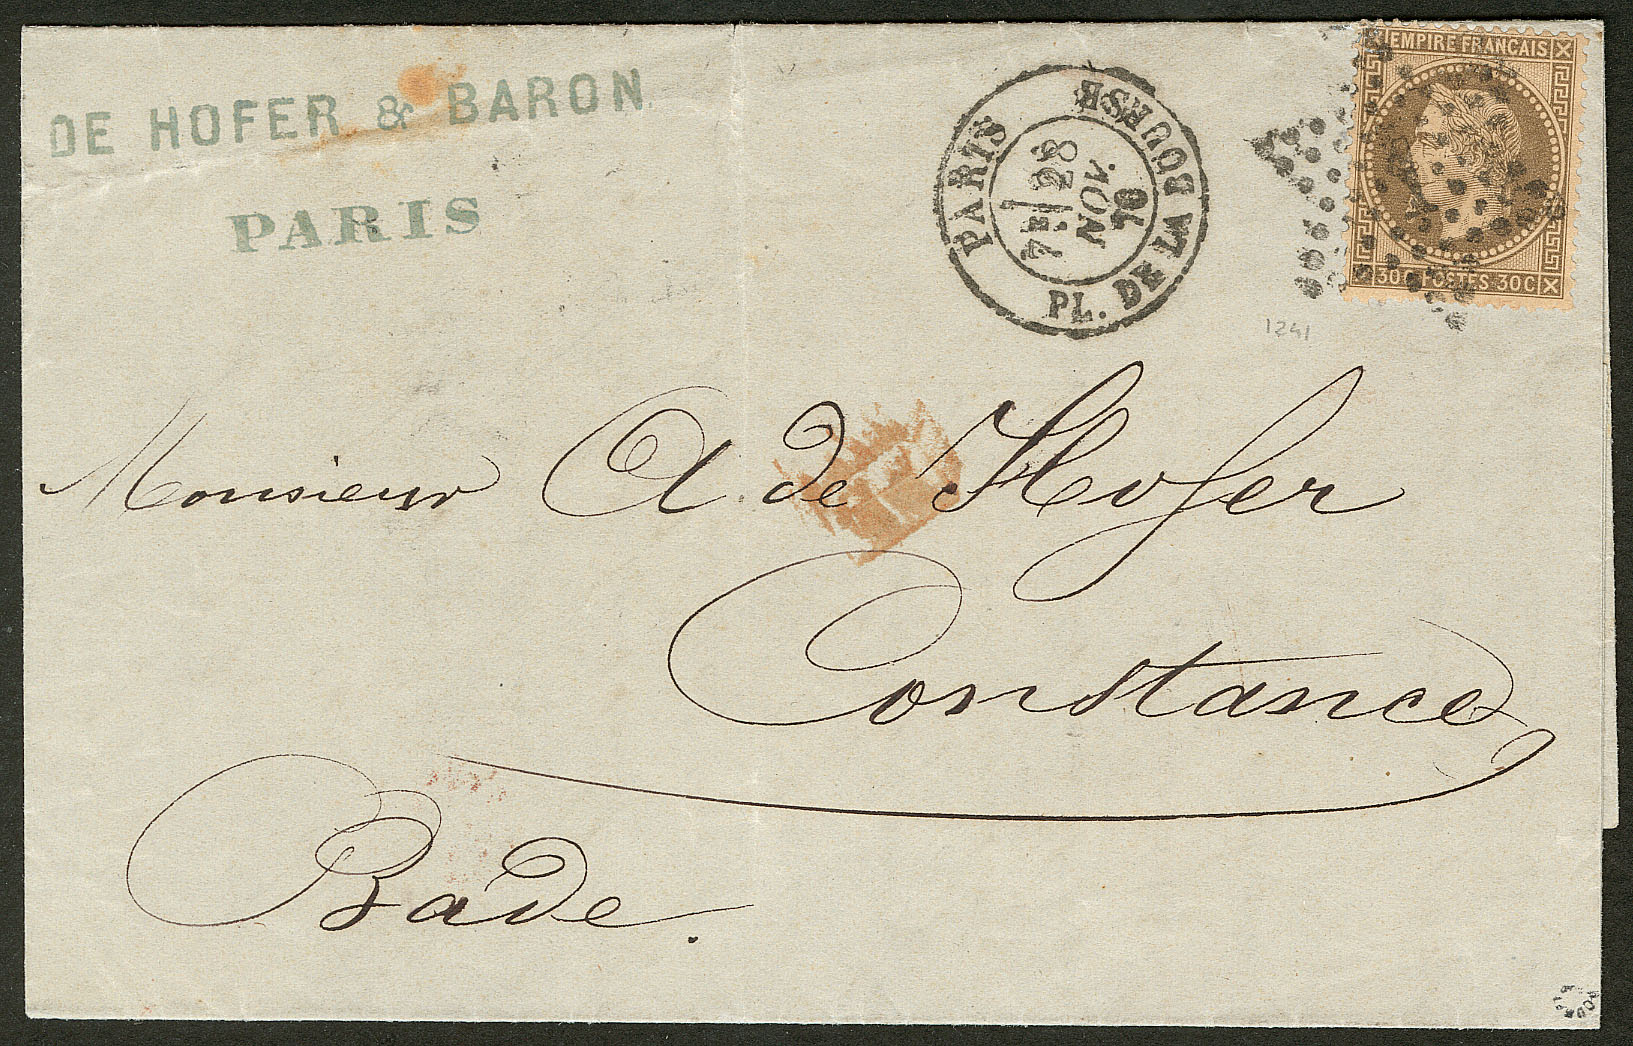 DE HOFER & BARON
PARIS
PARIS
PL. DE LA BOURSE
7E 28
NOV.
70
EMPIRE FRANCAIS
30C POSTES 30C
1241
Monsieur A. de Hofer
Constance
Bade.